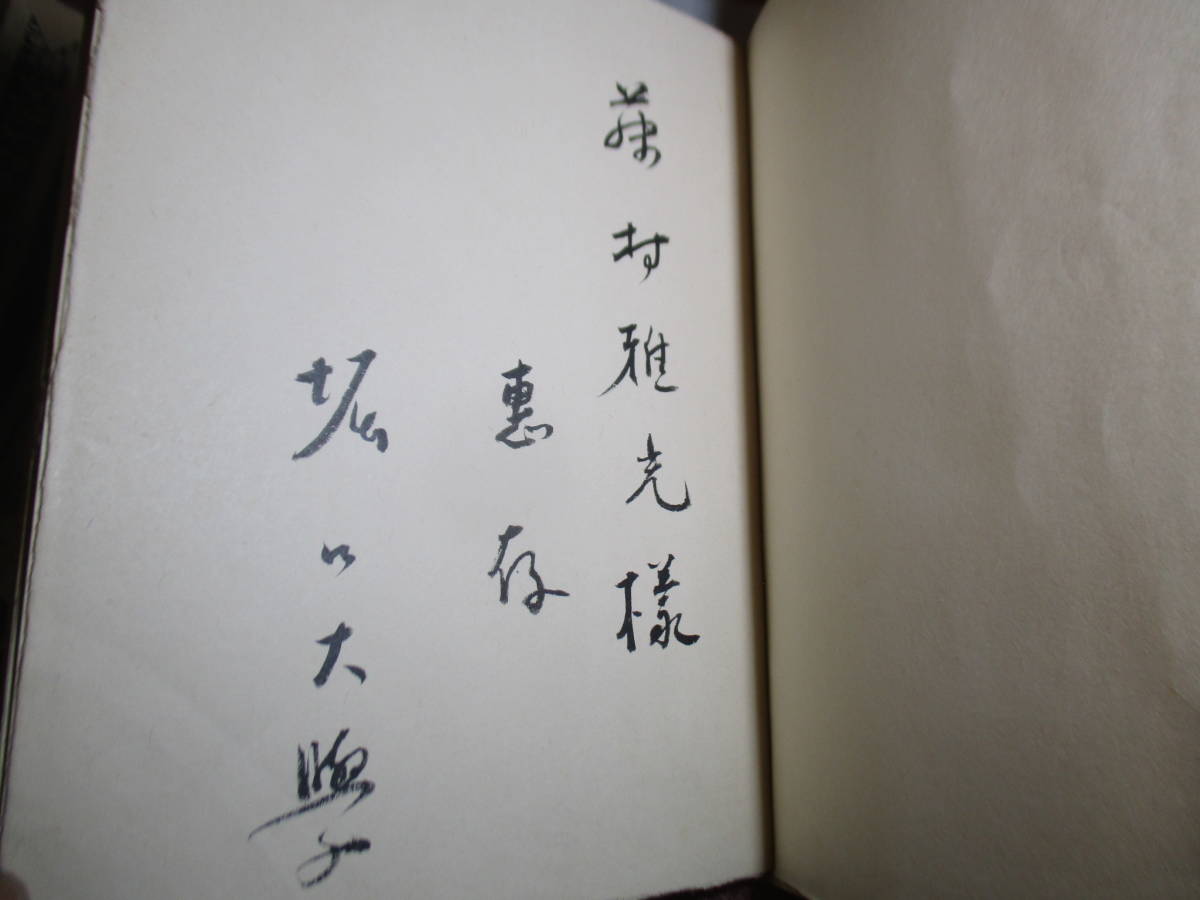 藤村雅光様
恵存
堀口大學